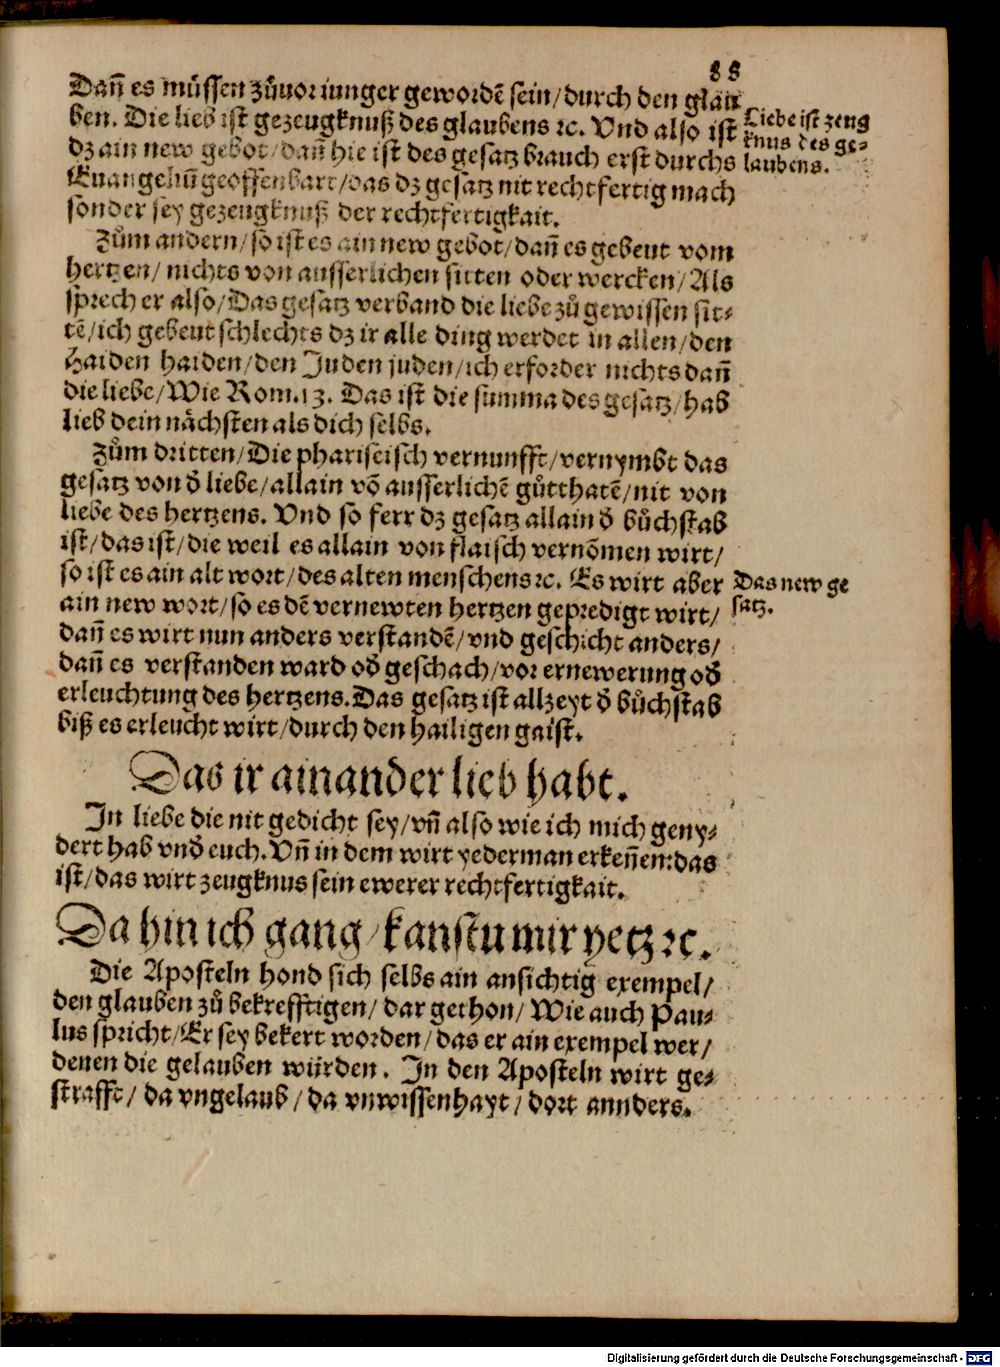 88
Dañ es müssen zůuor iunger gewordē sein/durch den glau
ben. Die lieb ist gezeugknuß des glaubens ꝛc. Vnd also ist
dz ain new gebot/dañ hie ist des gesatz brauch erst durchs
Euangeliū geoffenbart/das dz gesatz nit rechtfertig mach
sonder sey gezeugknuß der rechtfertigkait.
Liebe ist zeug
knus des ge-
laubens.
Zům andern/so ist es ain new gebot/dañ es gebeut vom
hertzen/nichts von ausserlichen sitten oder wercken/Als
sprech er also/Das gesatz verband die liebe zů gewissen sit-
tē/ich gebeut schlechts dz ir alle ding werdet in allen/den
Haiden haiden/den Juden juden/ich erforder nichts dañ
die liebe/Wie Rom.13. Das ist die summa des gesatz/hab
lieb dein nächsten als dich selbs.
Zům dritten/Die phariseisch vernunfft/vernymbt das
gesatz von d̄ liebe/allain vō ausserlichē gůtthatē/nit von
liebe des hertzens. Vnd so ferr dz gesatz allain d̄ bůchstab
ist/das ist/die weil es allain von flaisch vernōmen wirt/
so ist es ain alt wort/des alten menschens ꝛc. Es wirt aber
ain new wort/so es dē vernewten hertzen gepredigt wirt/
dañ es wirt nun anders verstandē/vnd geschicht anders/
dañ es verstanden ward od̄ geschach/vor ernewerung od̄
erleuchtung des hertzens. Das gesatz ist allzeyt d̄ bůchstab
biß es erleucht wirt/durch den hailigen gaist.
Das new ge
satz.
Das ir ainander lieb habt.
In liebe die nit gedicht sey/vñ also wie ich mich geny-
dert hab vnd̄ euch. Vñ in dem wirt yederman erkeñen:das
ist/das wirt zeugknus sein ewerer rechtfertigkait.
Da hin ich gang/kanstu mir yetz ꝛc.
Die Aposteln hond sich selbs ain ansichtig exempel/
den glauben zů bekrefftigen/dar gethon/Wie auch Pau-
lus spricht/Er sey bekert worden/das er ain exempel wer/
denen die gelauben würden. In den Aposteln wirt ge-
strafft/da vngelaub/da vnwissenhayt/dort annders.
Digitalisierung gefördert durch die Deutsche Forschungsgemeinschaft - DFG